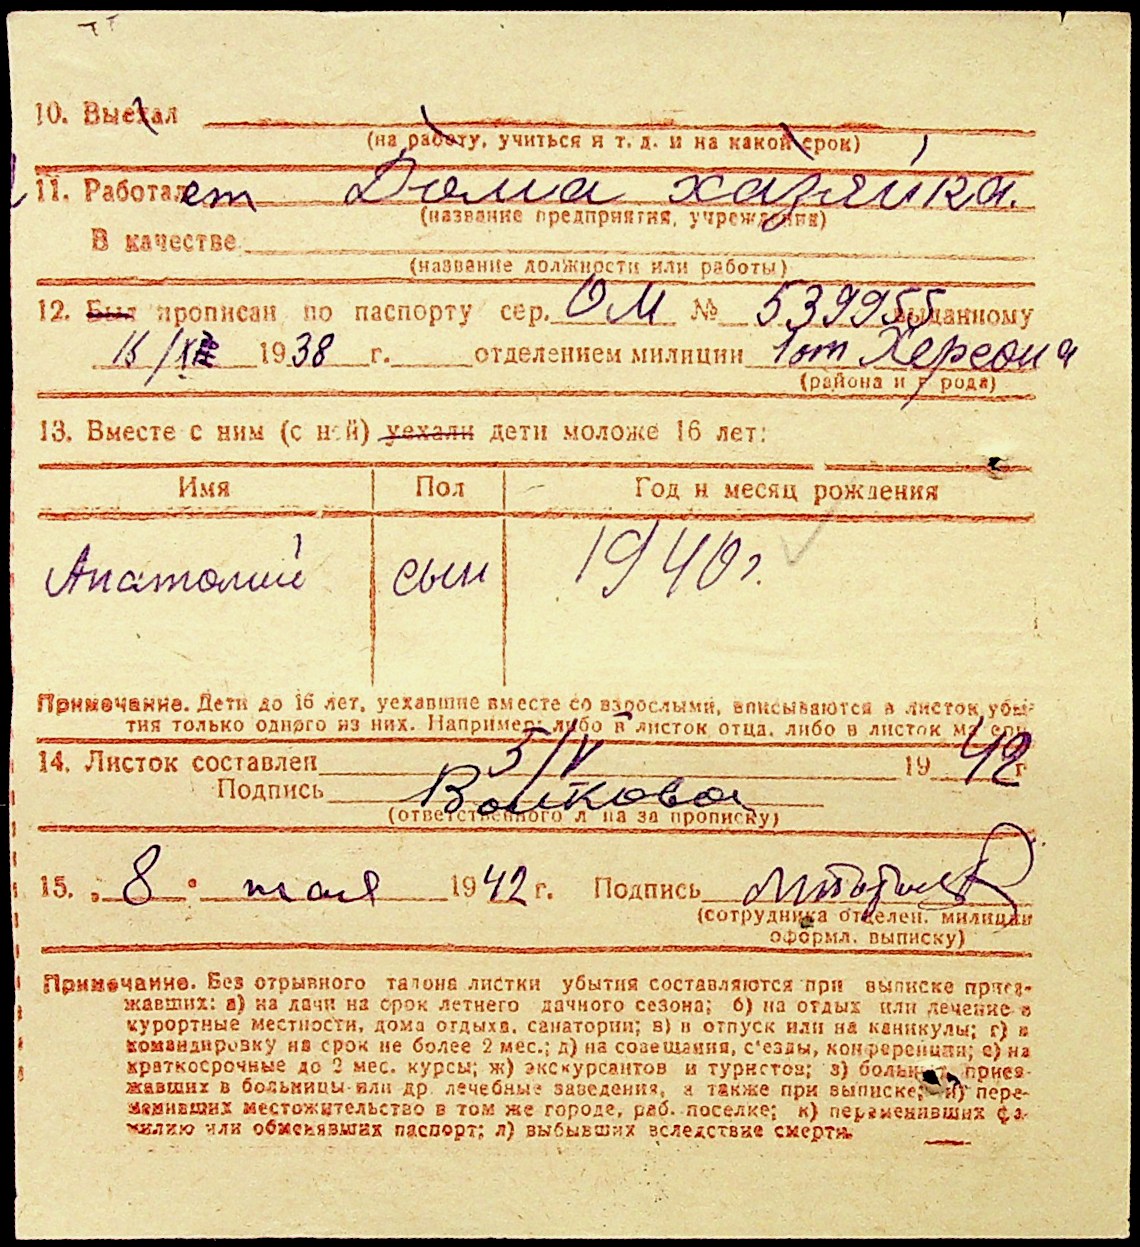 10. Выехал
(на работу, учиться и т. д. и на какой срок)
11. Работает Дома хазяйка.
(название предприятия, учреждения)
В качестве
(название должности или работы)
12. Был прописан по паспорту сер. ОМ № 539955 выданному
15/XII 1938 г. отделением милиции 1 от Херсона
(района и города)
13. Вместе с ним (с ней) уехали дети моложе 16 лет:
Имя Пол Год и месяц рождения
Анатолий сын 1940 г.
Примечание. Дети до 16 лет, уехавшие вместе со взрослыми, вписываются в листок убы-
тия только одного из них. Например: либо в листок отца, либо в листок матери
14. Листок составлен 5/V 1942 г
Подпись Волкова
(ответственного лица за прописку)
15. „8" мая 1942 г. Подпись
(сотрудника отделен. милиции
оформл. выписку)
Примечание. Без отрывного талона листки убытия составляются при выписке приез-
жавших: а) на дачи на срок летнего дачного сезона; б) на отдых или лечение в
курортные местности, дома отдыха, санатории; в) в отпуск или на каникулы; г) в
командировку на срок не более 2 мес.; д) на совещания, с'езды, конференции; е) на
краткосрочные до 2 мес. курсы; ж) экскурсантов и туристов; з) больных, приез-
жавших в больницы или др лечебные заведения, а также при выписке; и) пере-
менивших местожительство в том же городе, раб. поселке; к) переменивших фа-
милию или обменявших паспорт; л) выбывших вследствие смерти.